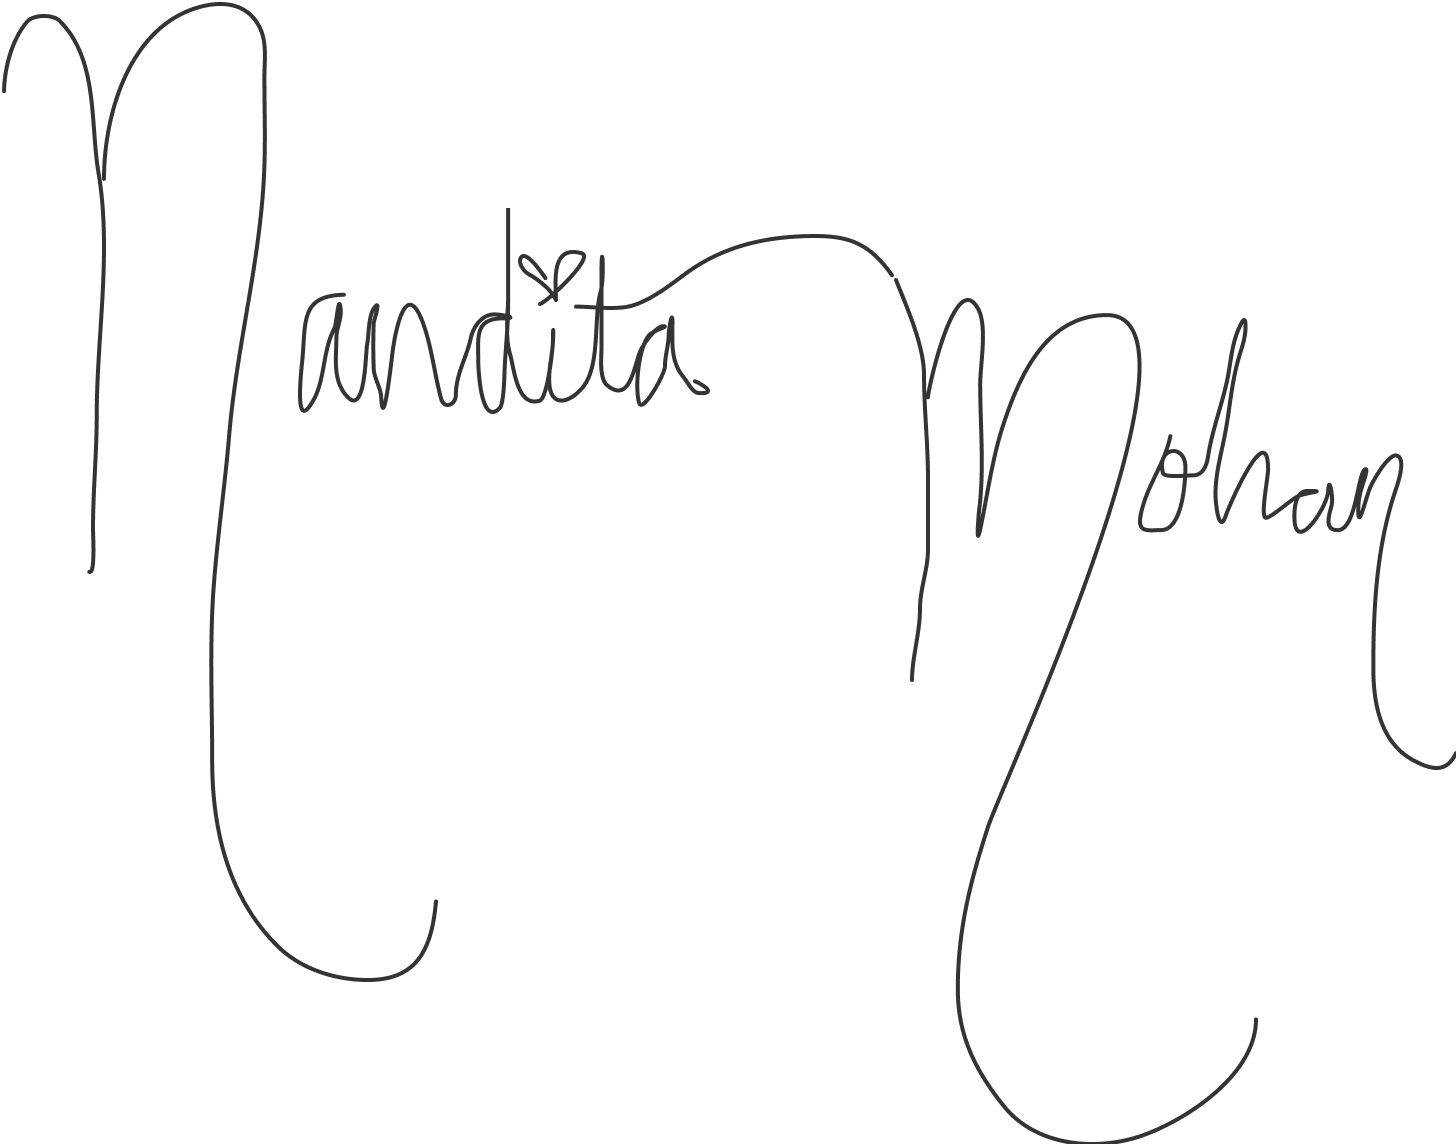 Nandita Mohan